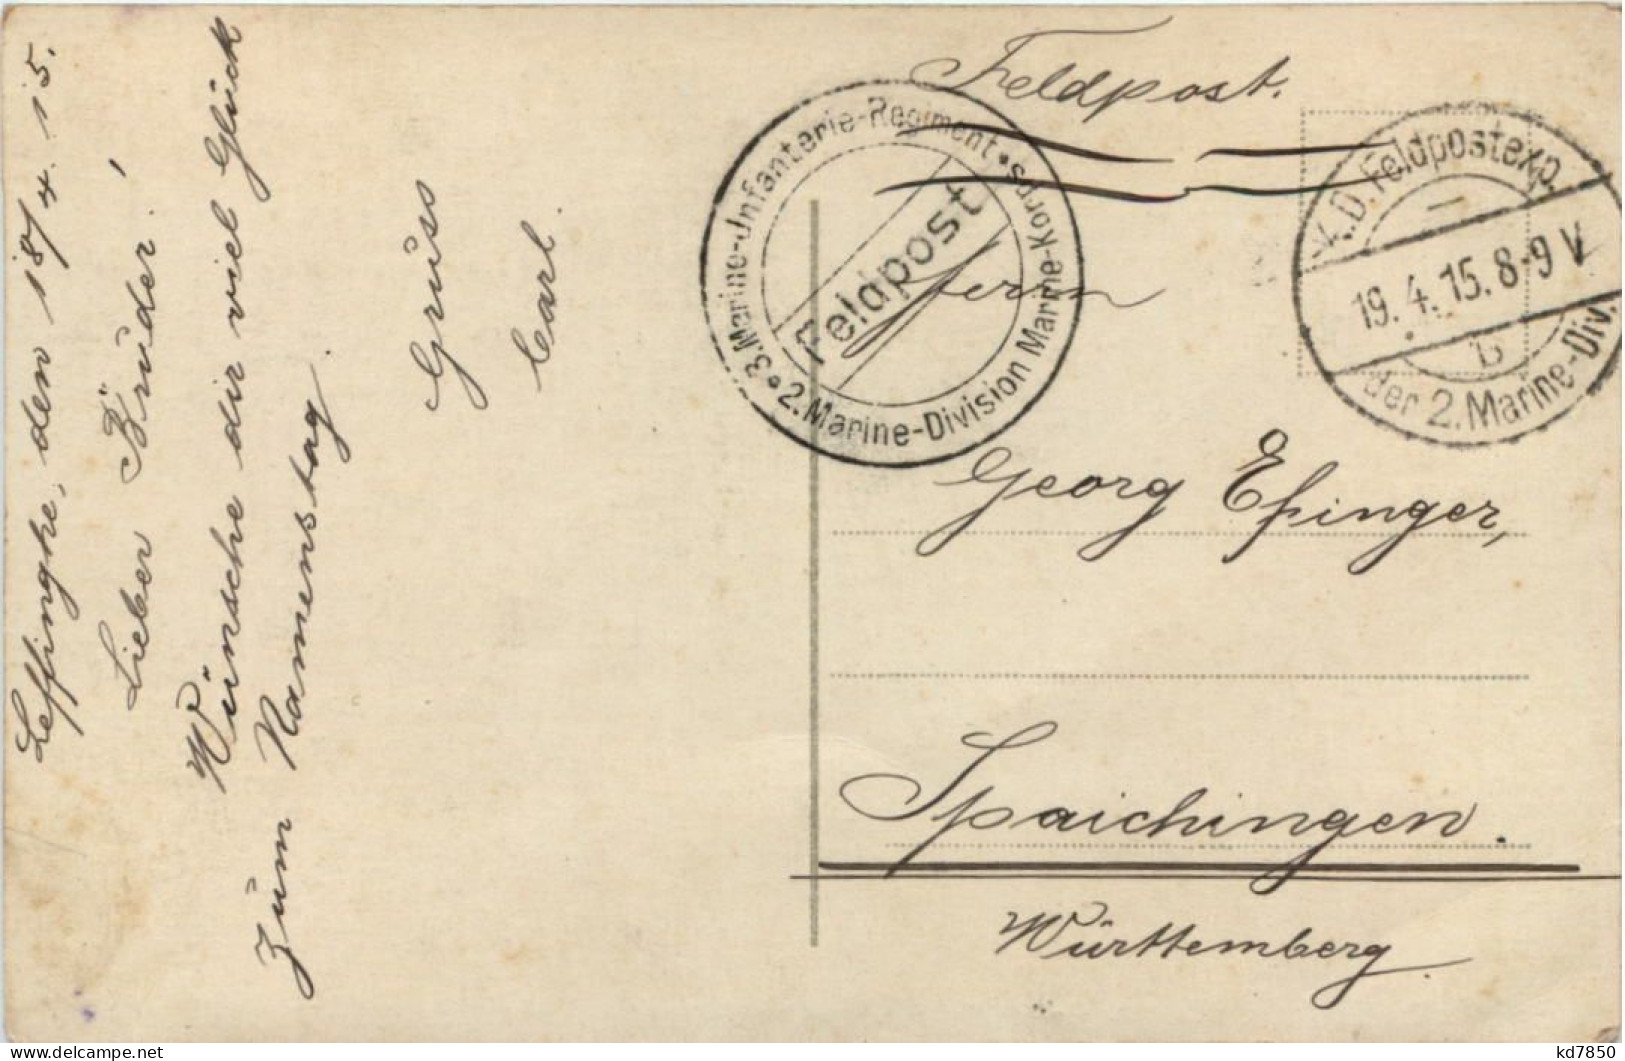 Leffinghe, den 18/4. 15.
Lieber Brüder!
Wünsche dir viel Glück
zum Namenstag.
Gruss
Carl.
Feldpost.
3. Marine-Jnfanterie-Regiment • 2. Marine-Division Marine-Korps.
Feldpost
K.D. Feldpostexp.
19. 4. 15. 8-9 V
b
der 2. Marine-Div.
Herrn
Georg Efinger,
Spaichingen.
Württemberg.
delcampe.net
kd7850